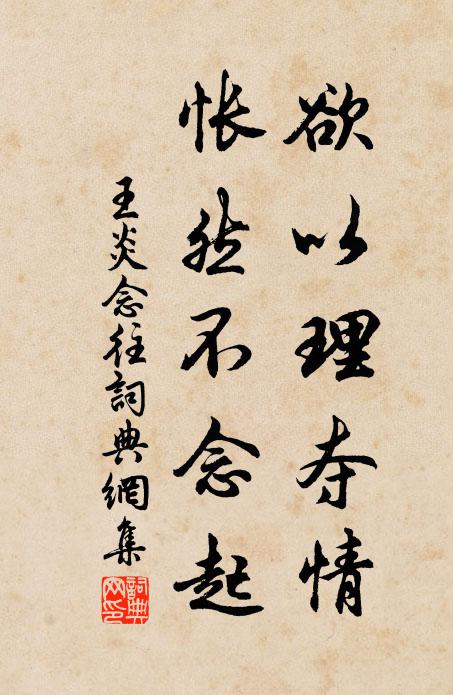 欲以理夺情
怅然不念起
王炎念往詞典網集
詞典网印